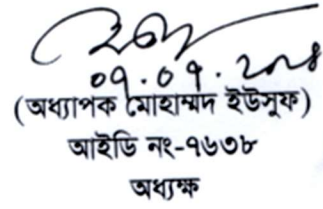 ০৭.০৭.২০২৪
(অধ্যাপক মোহাম্মদ ইউসুফ)
আইডি নং-৭৬৩৮
অধ্যক্ষ